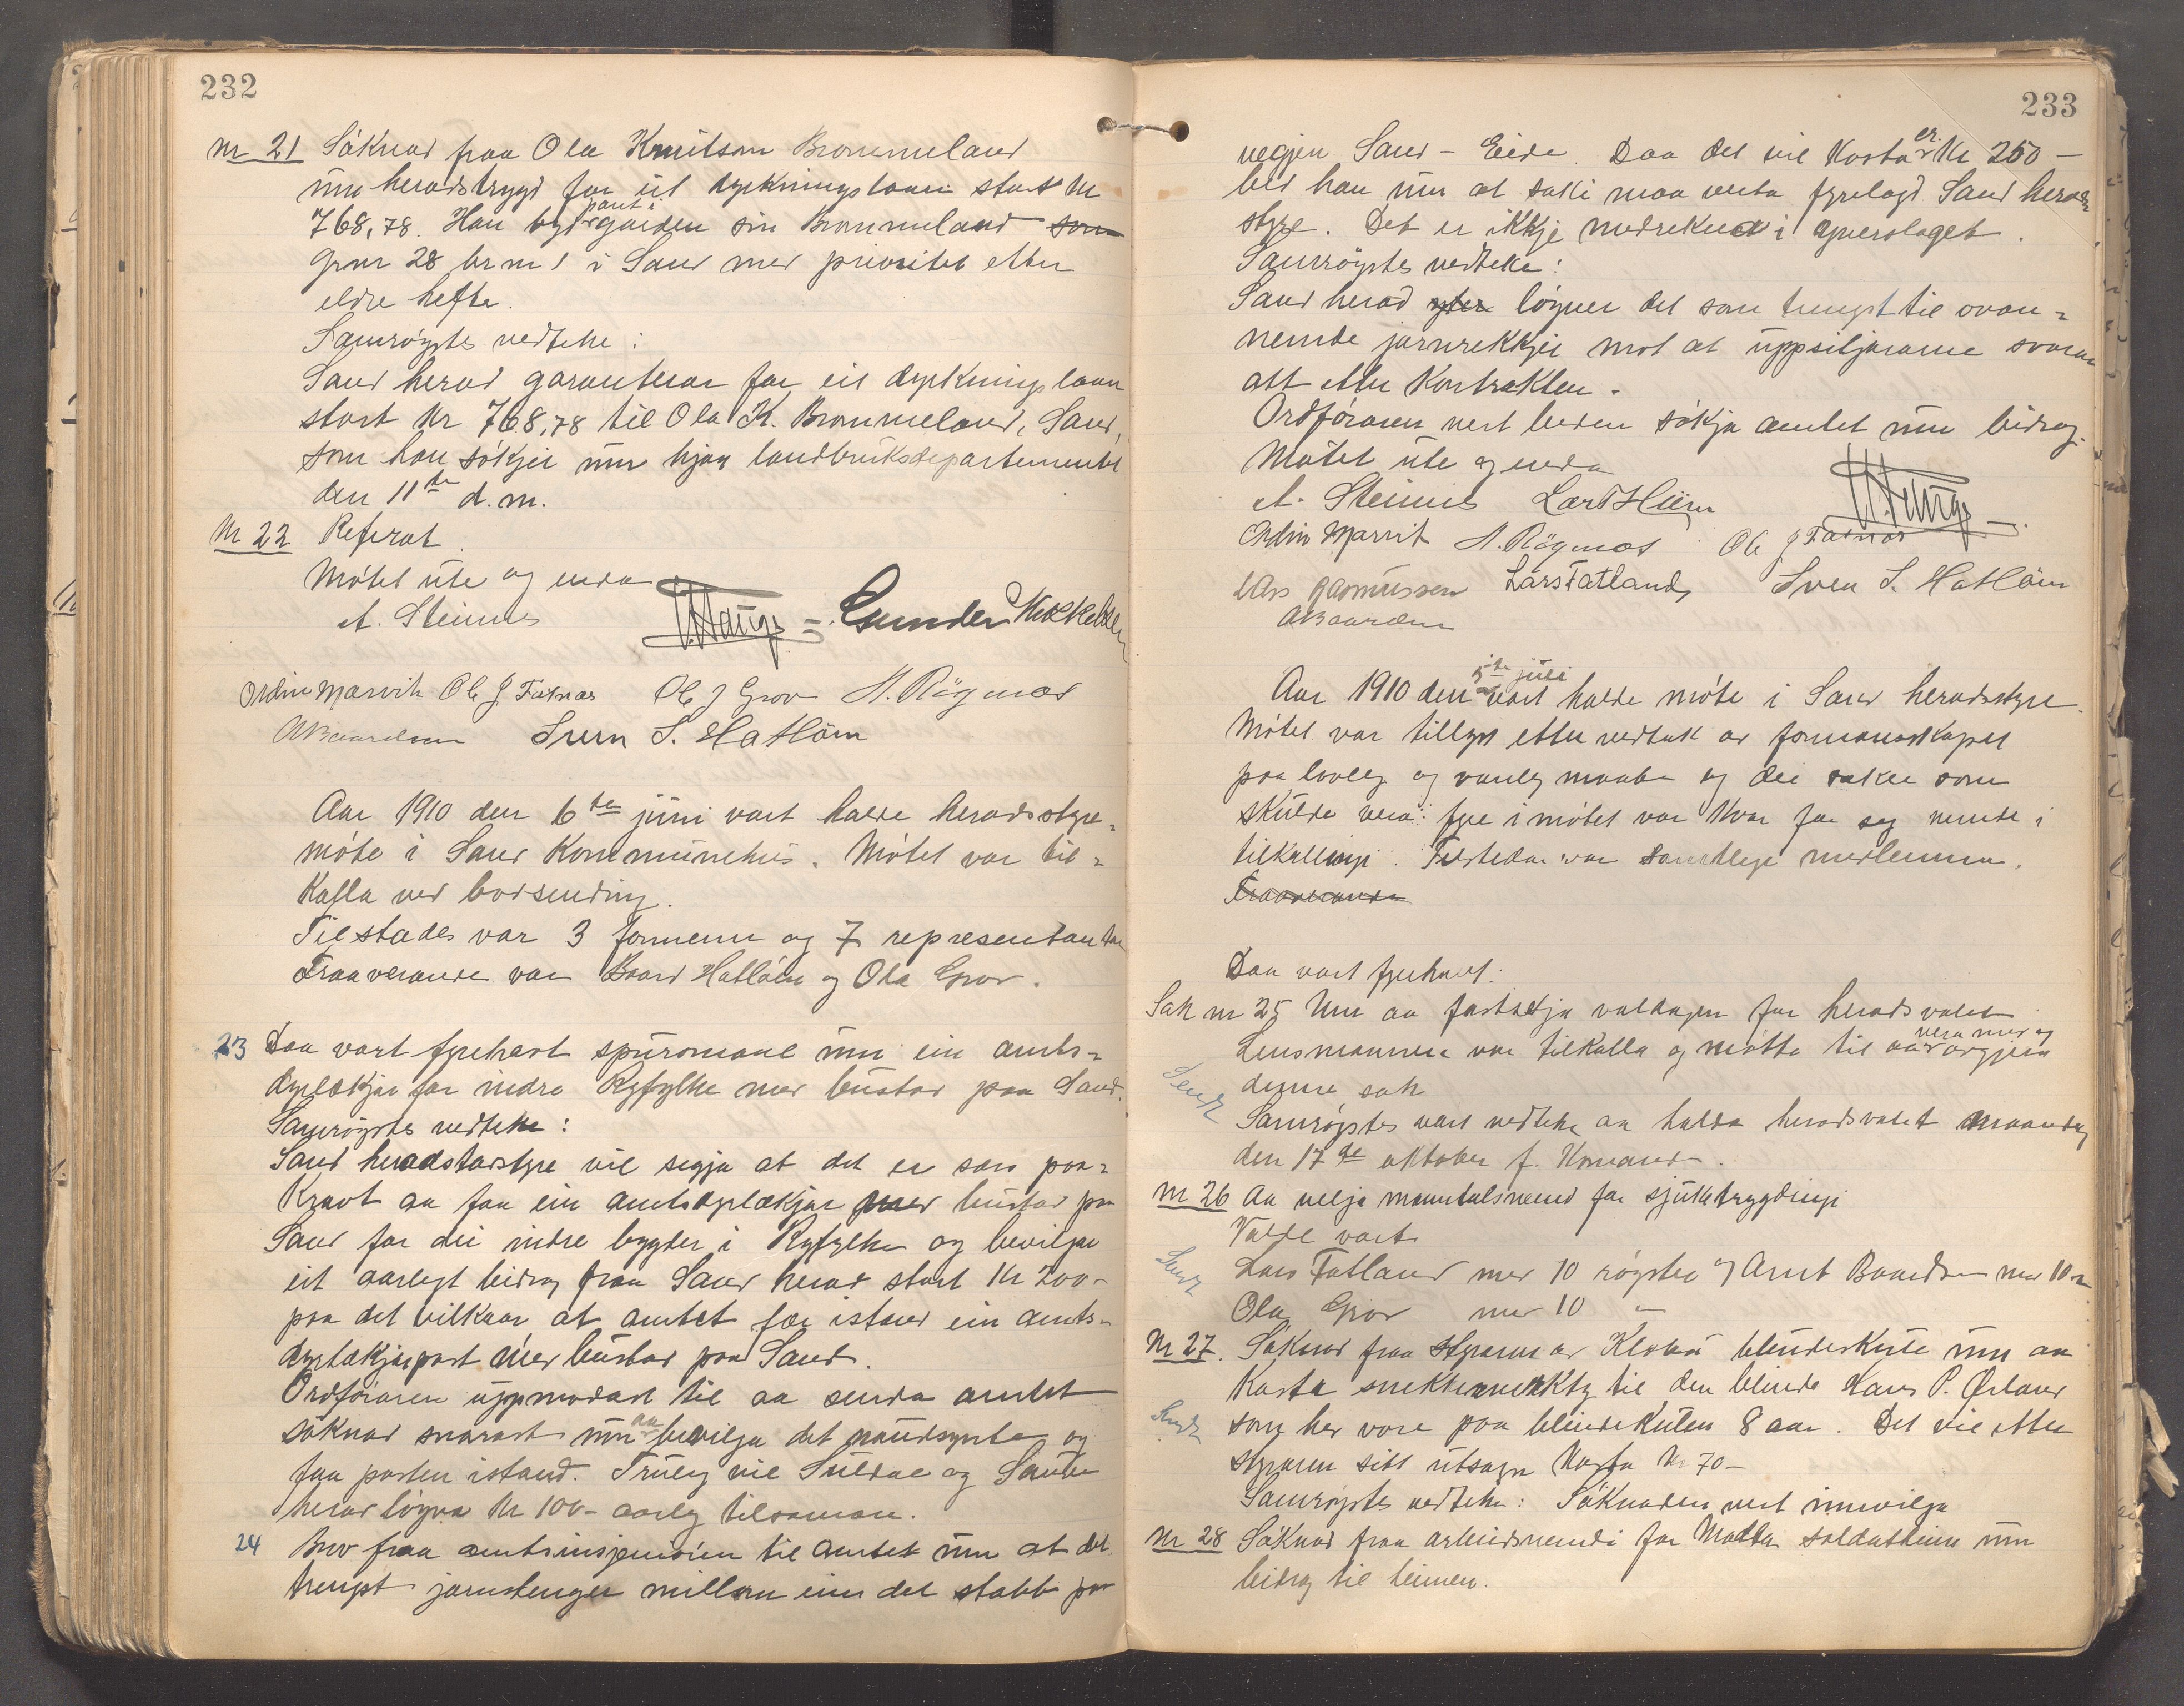 232
nr 21 Søknad fraa Ola Knutson Brommeland
um heradstrygd for eit dyrkningslaan stort kr
768,78. Han byd pant i garden sin Brommeland som
grnr 28 brnr 1 i Sand med prioritet etter
eldre hefte.
Samrøystes vedteke:
Sand herad garanterar for eit dyrkningslaan
stort kr 768,78 til Ola K. Brommeland, Sand,
som han søkjer um hjaa landbruksdepartementet
den 11te d.m.
Nr 22 Referat.
Møtet ute og enda
A. Steinnes Gunder
Ordin Marvik Ole J Fatnæs Ole J Grov A. Røgnæs
A Baardsen Sven S. Hatløin
Aar 1910 den 6te juni vart halde heradsstyre-
møte i Sand Kommunehus. Møtet var til-
kalla ved bodsending.
Tilstades var 3 formenn og 7 representantar
Fraaverande var Baard Hatløin og Ola Grov.
23 Daa vart fyrehavt spursmaal um ein amts-
dyrlækjar for indre Ryfylke med bustad paa Sand.
Samrøystes vedteke:
Sand heradstyre vil segja at det er sers paa-
kravt aa faa ein amtsdyrlækjar med bustad paa
Sand for dei indre bygder i Ryfylke og bevilgar
eit aarlegt bidrag fraa Sand herad stort Kr 200-
paa det vilkaar at amtet fær istand ein amts-
dyrlækjarpost med bustad paa Sand.
Ordføraren uppmodast til aa senda amtet
søknad snarast um aa bevilga det naudsynte og
faa posten istand. Truleg vil Suldal og Sauda
herad løyva kr 100- aarleg tilsaman.
24 Brev fraa amtsinsjeniøren til amtet um at det
trengst jarnstenger millom ein del stabb paa
233
vegjen Sand - Eide. Daa det vil kosta cr. Kr 250-
bed han um at saki maa verta fyrelagd Sand herads
styre. Det er ikkje medrekna i yverslaget.
Samrøystes vedteke:
Sand herad yter løyver det som trengst til ovan-
nemde jarnrekkjer mot at uppsitjarane svarar
att etter kontrakten.
Ordføraren vert beden søkja amtet um bidrag.
Møtet ute og enda
A. Steinnes Lars Hiim
Ordin Marvik A. Røgnæs Ole J Fatnæs
Lars Rasmussen Lars Fatland Sven S. Hatløin
A Baardsen
Aar 1910 den 5te juli vart halde møte i Sand heradsstyre.
Møtet var tillyst etter vedtak av formannskapet
paa lovleg og vanleg maate og dei saker som
skulde vera fyre i møtet var kvar for seg nemde i
tilkallingi. Tilstedar var samtlege medlemmer.
Fraaverande
Daa vart fyrehavt:
Sak nr 25 Um aa fastsetja valdagen for heradsvalet
Lensmannen var tilkalla og møtte til aa vera med og avgjera
denne sak
Sendt
Samrøystes vart vedteke aa halda heradsvalet maandag
den 17de oktober f. Komande.
Nr 26 Aa velja manntalsmenn for sjuketrygdingi
Valde vart
Sendt
Lars Fatland med 10 røyster og Arnt Baardsen med 10 "
Ola Grov med 10 "
Nr 27. Søknad fraa styraren av Klæbu blindeskule um aa
kosta snikkarverkty til den blinde Hans P. Ørland
Sendt
som hev vore paa blindeskulen 8 aar. Det vil etter
styraren sitt utsagn kosta kr 70-
Samrøystes vedteke: Søknaden vert innvilga
Nr 28 Søknad fraa arbeidsnemdi for Madla soldatheim um
bidrag til heimen.